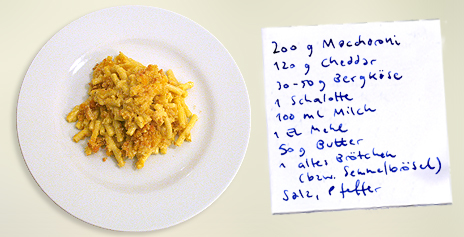 200 g Maccharoni
120 g Cheddar
30-50g Bergkäse
1 Schalotte
100 ml Milch
1 EL Mehl
50g Butter
1 altes Brötchen
(bzw. Semmelbrösel)
Salz, Pfeffer